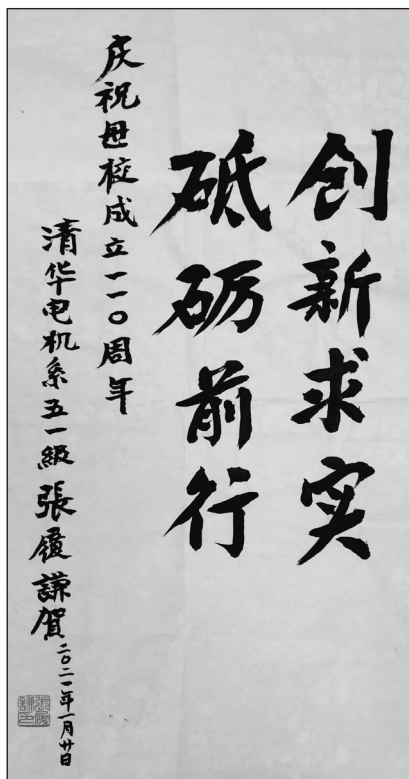 创新求实
砥砺前行
庆祝母校成立一一〇周年
清华电机系五一級 張履謙賀
二〇二一年一月廿日